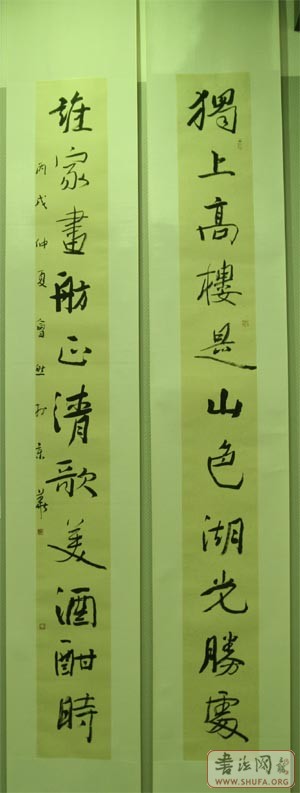 獨上高樓是山色湖光勝處
誰家畫舫正清歌美酒酣時
丙戌仲夏
書法网
WWW.SHUFA.ORG